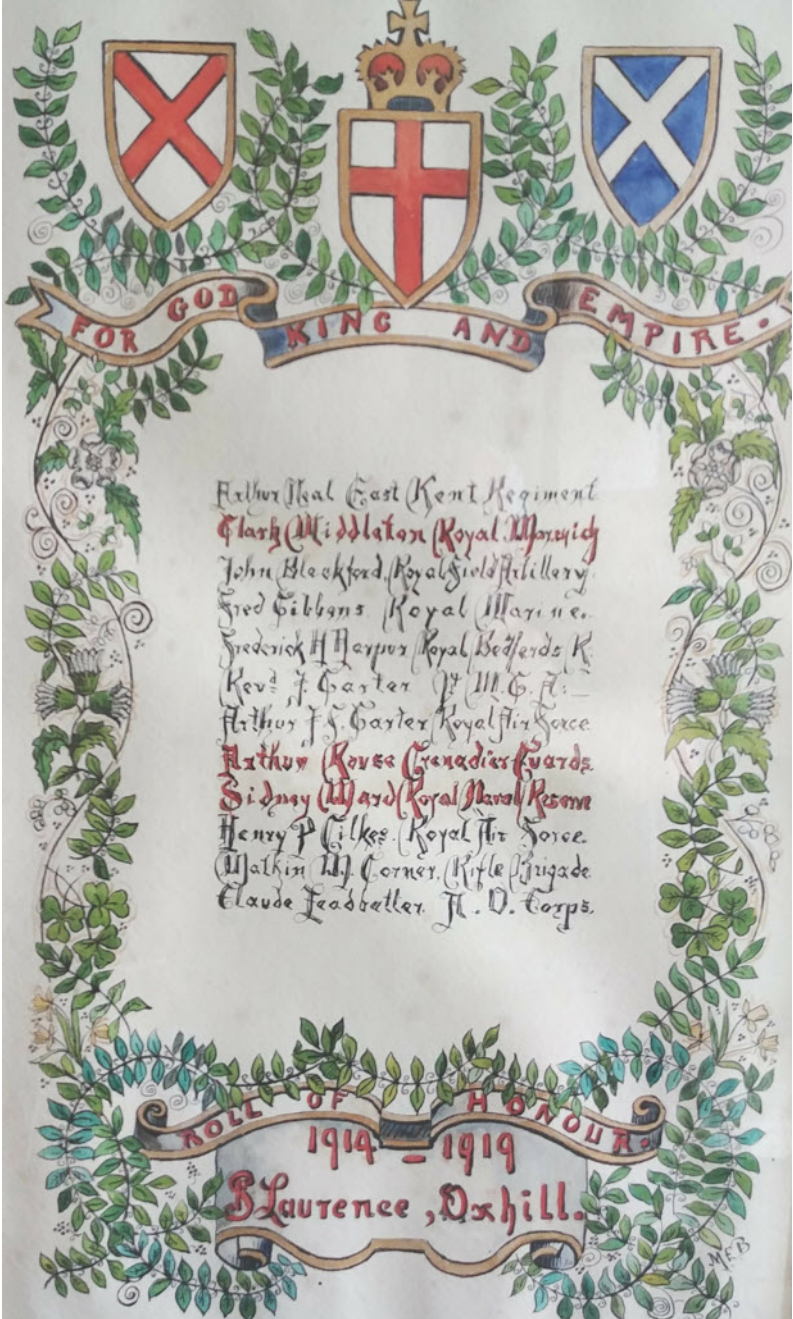 FOR GOD KING AND EMPIRE.
Arthur Neal East Kent Regiment
Clark Middleton Royal Warwick
John Blackford Royal Field Artillery.
Fred Gibbens Royal Marine.
Frederick H Harpur Royal Bedfords R.
Revd J. Carter Pt M.G.A:_
Arthur J.S. Carter Royal Air Force
Arthur Rouse Grenadier Guards.
Sidney Ward Royal Naval Reserve
Henry P Gilkes. Royal Air Force.
Watkin W. Corner. Rifle Brigade
Claude Leadbetter. A.O. Corps.
ROLL OF HONOUR.
1914 - 1919
St Laurence, Oxhill.
MEB